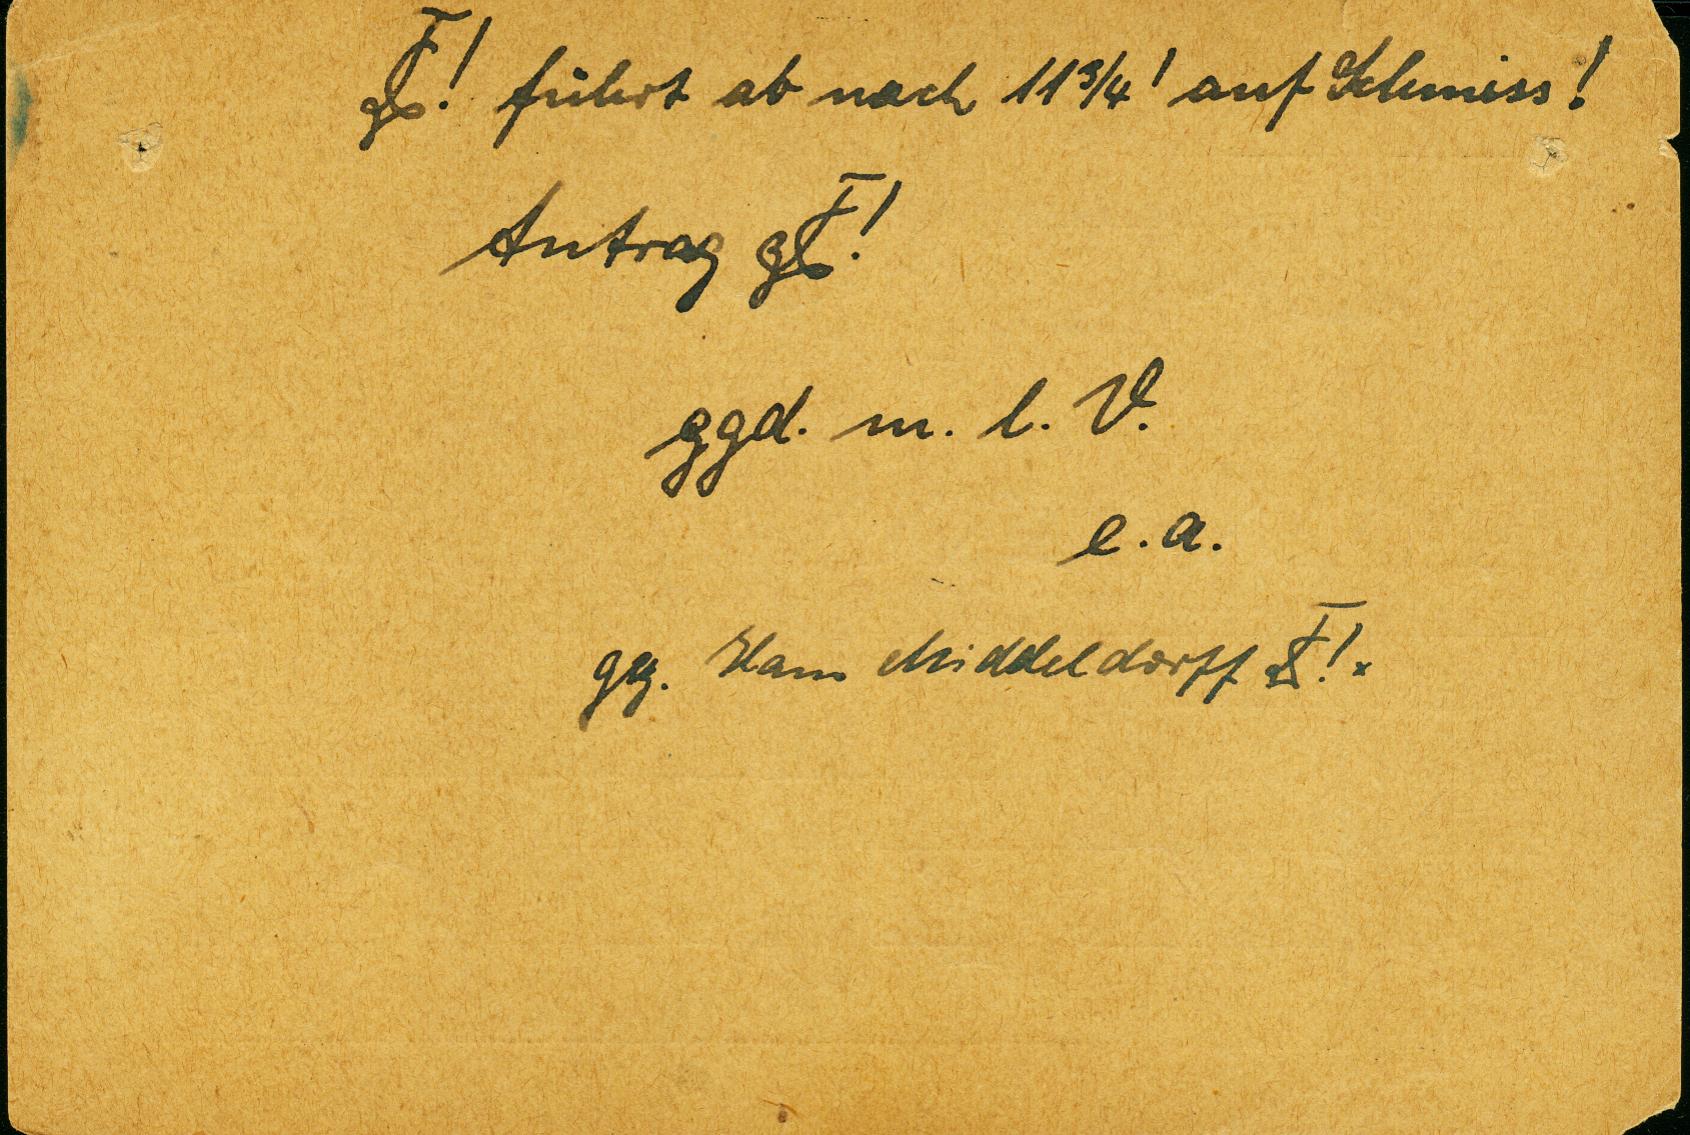 führt ab nach 11 3/4! auf Schmiss!
Antrag
ggd. m. l. V.
e. a.
gez. Hans Middeldorff